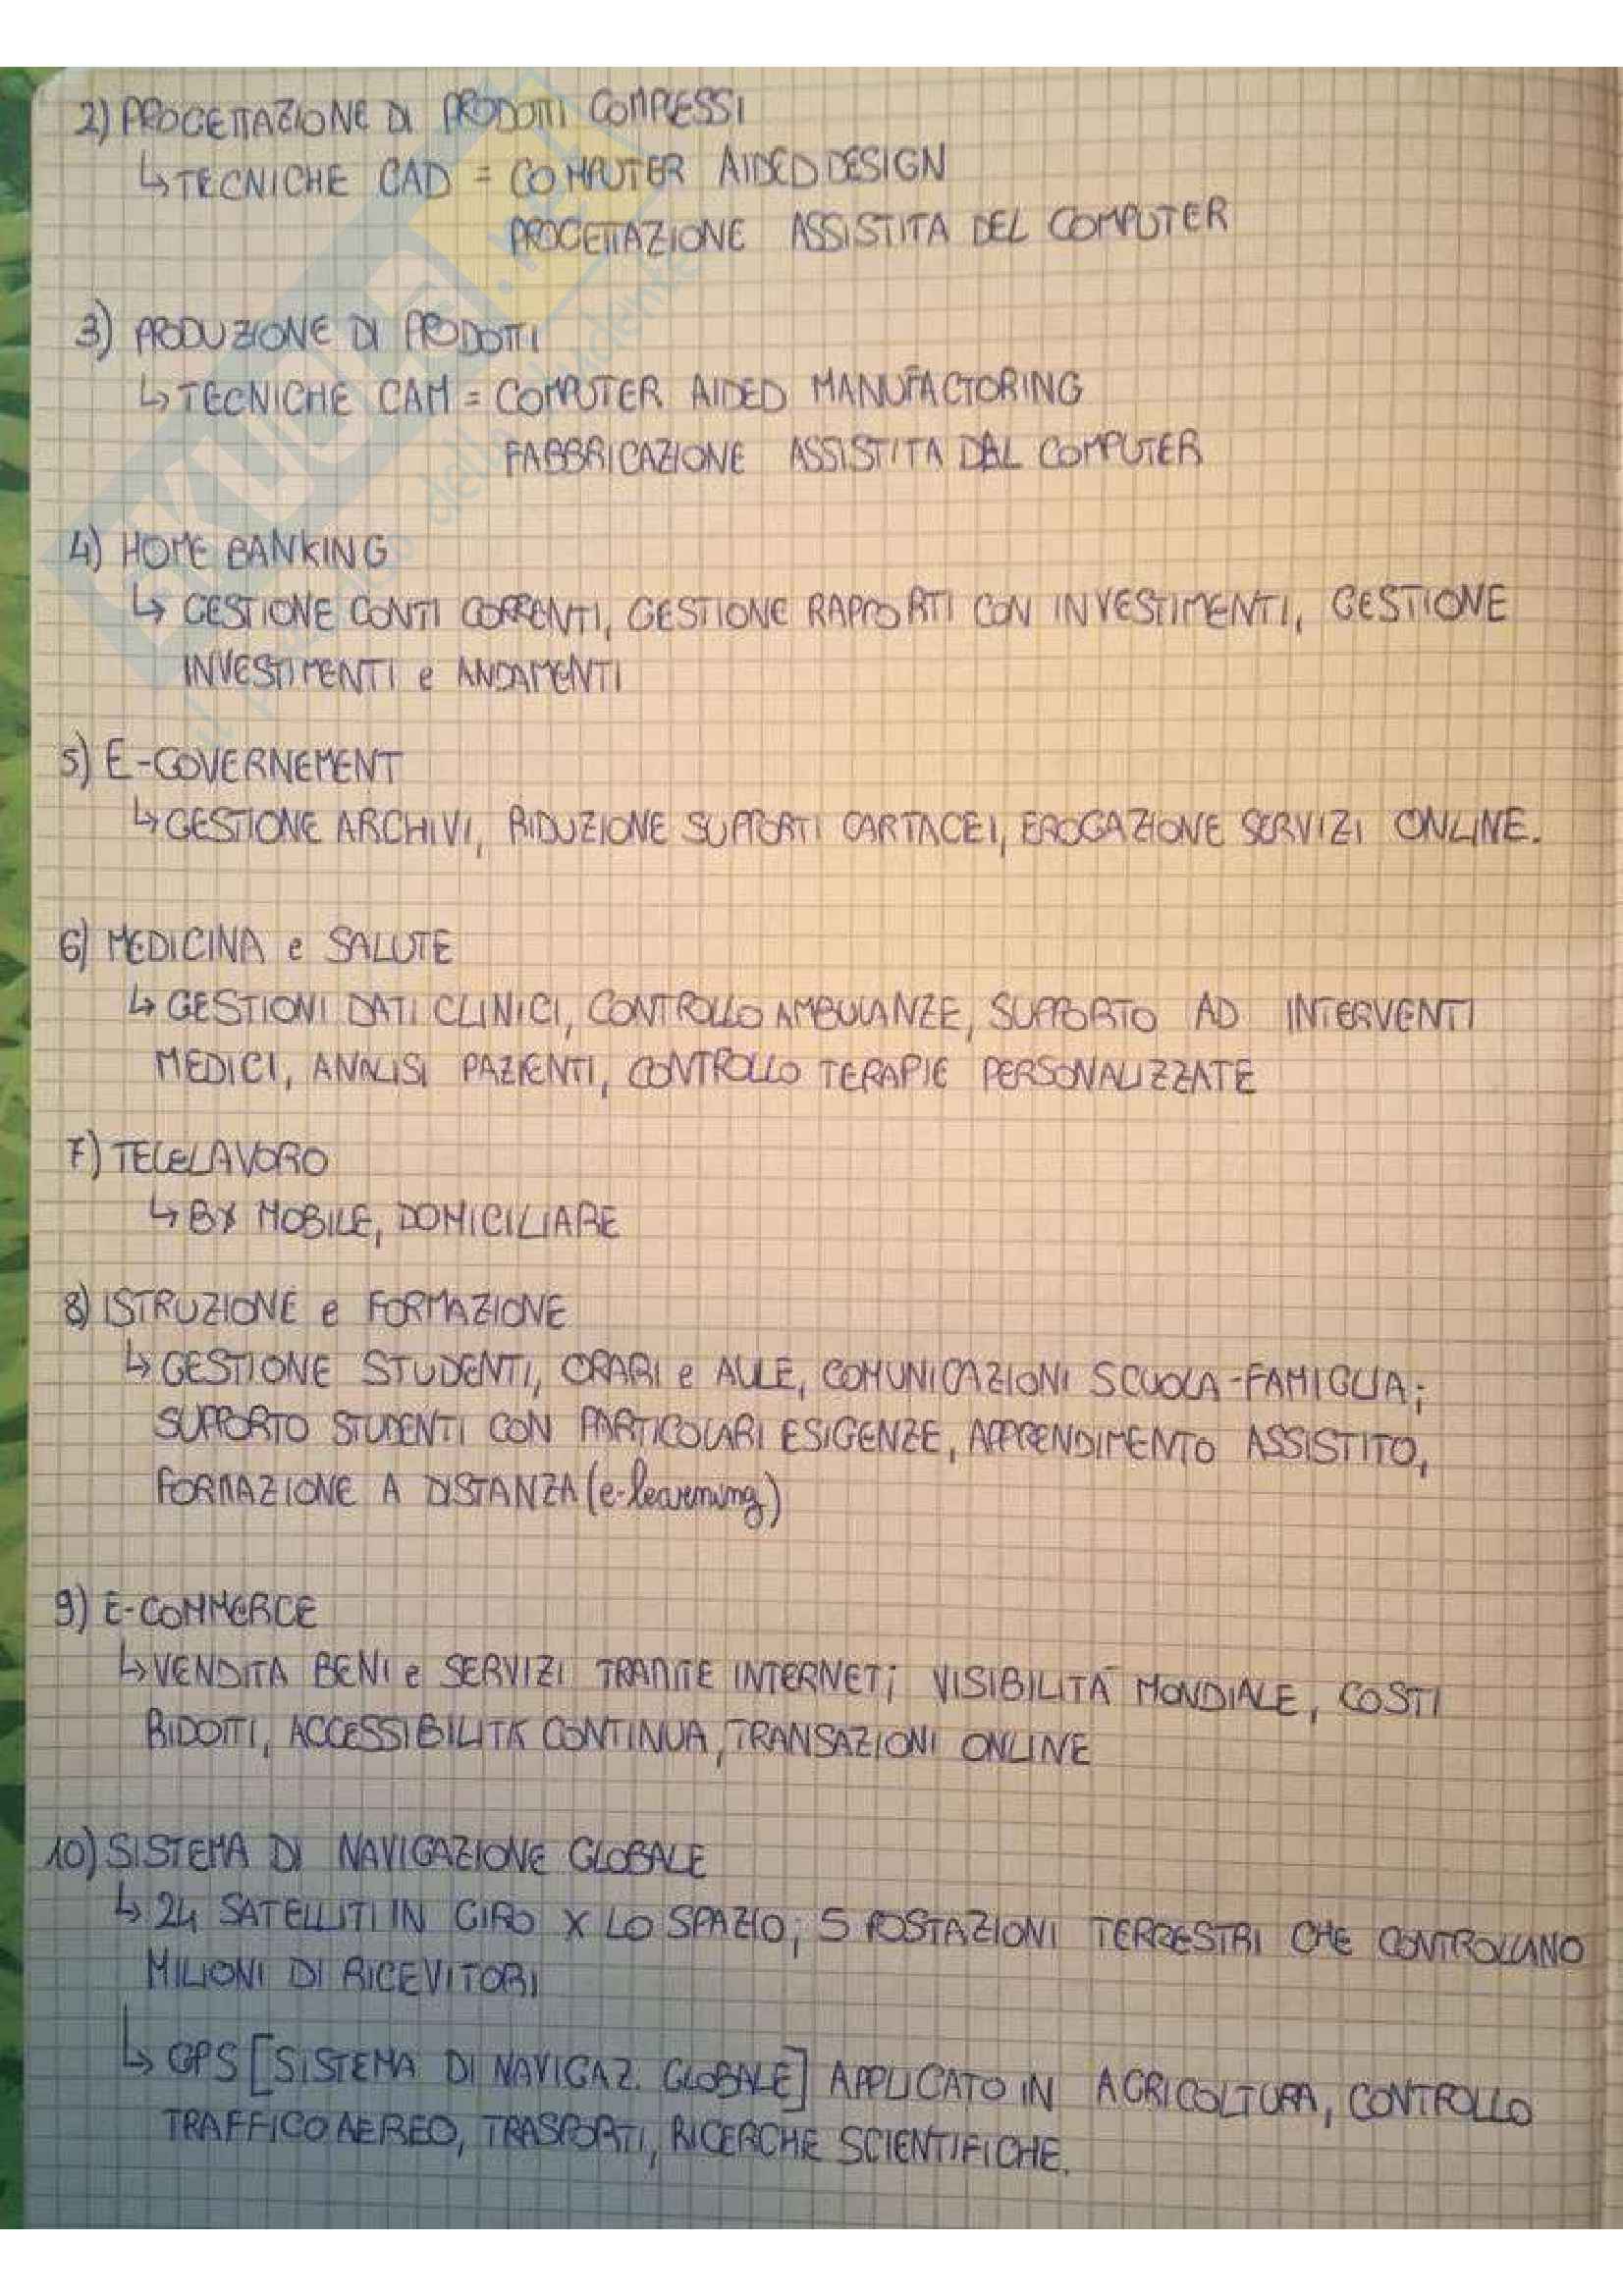 2) PROGETTAZIONE DI PRODOTTI COMPLESSI
↳ TECNICHE CAD = COMPUTER AIDED DESIGN
PROGETTAZIONE ASSISTITA DEL COMPUTER
3) PRODUZIONE DI PRODOTTI
↳ TECNICHE CAM = COMPUTER AIDED MANUFACTORING
FABBRICAZIONE ASSISTITA DAL COMPUTER
4) HOME BANKING
↳ GESTIONE CONTI CORRENTI, GESTIONE RAPPORTI CON INVESTIMENTI, GESTIONE
INVESTIMENTI e ANDAMENTI
5) E-GOVERNEMENT
↳ GESTIONE ARCHIVI, RIDUZIONE SUPPORTI CARTACEI, EROGAZIONE SERVIZI ONLINE.
6) MEDICINA e SALUTE
↳ GESTIONI DATI CLINICI, CONTROLLO AMBULANZE, SUPPORTO AD INTERVENTI
MEDICI, ANALISI PAZIENTI, CONTROLLO TERAPIE PERSONALIZZATE
7) TELELAVORO
↳ MOBILE, DOMICILIARE
8) ISTRUZIONE e FORMAZIONE
↳ GESTIONE STUDENTI, ORARI e AULE, COMUNICAZIONI SCUOLA-FAMIGLIA;
SUPPORTO STUDENTI CON PARTICOLARI ESIGENZE, APPRENDIMENTO ASSISTITO,
FORMAZIONE A DISTANZA (e-learning)
9) E-COMMERCE
↳ VENDITA BENI e SERVIZI TRAMITE INTERNET; VISIBILITÀ MONDIALE, COSTI
RIDOTTI, ACCESSIBILITÀ CONTINUA, TRANSAZIONI ONLINE
10) SISTEMA DI NAVIGAZIONE GLOBALE
↳ 24 SATELLITI IN GIRO X LO SPAZIO; 5 POSTAZIONI TERRESTRI CHE CONTROLLANO
MILIONI DI RICEVITORI
↳ GPS [SISTEMA DI NAVIGAZ. GLOBALE] APPLICATO IN AGRICOLTURA, CONTROLLO
TRAFFICO AEREO, TRASPORTI, RICERCHE SCIENTIFICHE.
SKUOLA.net
il paradiso dello studente